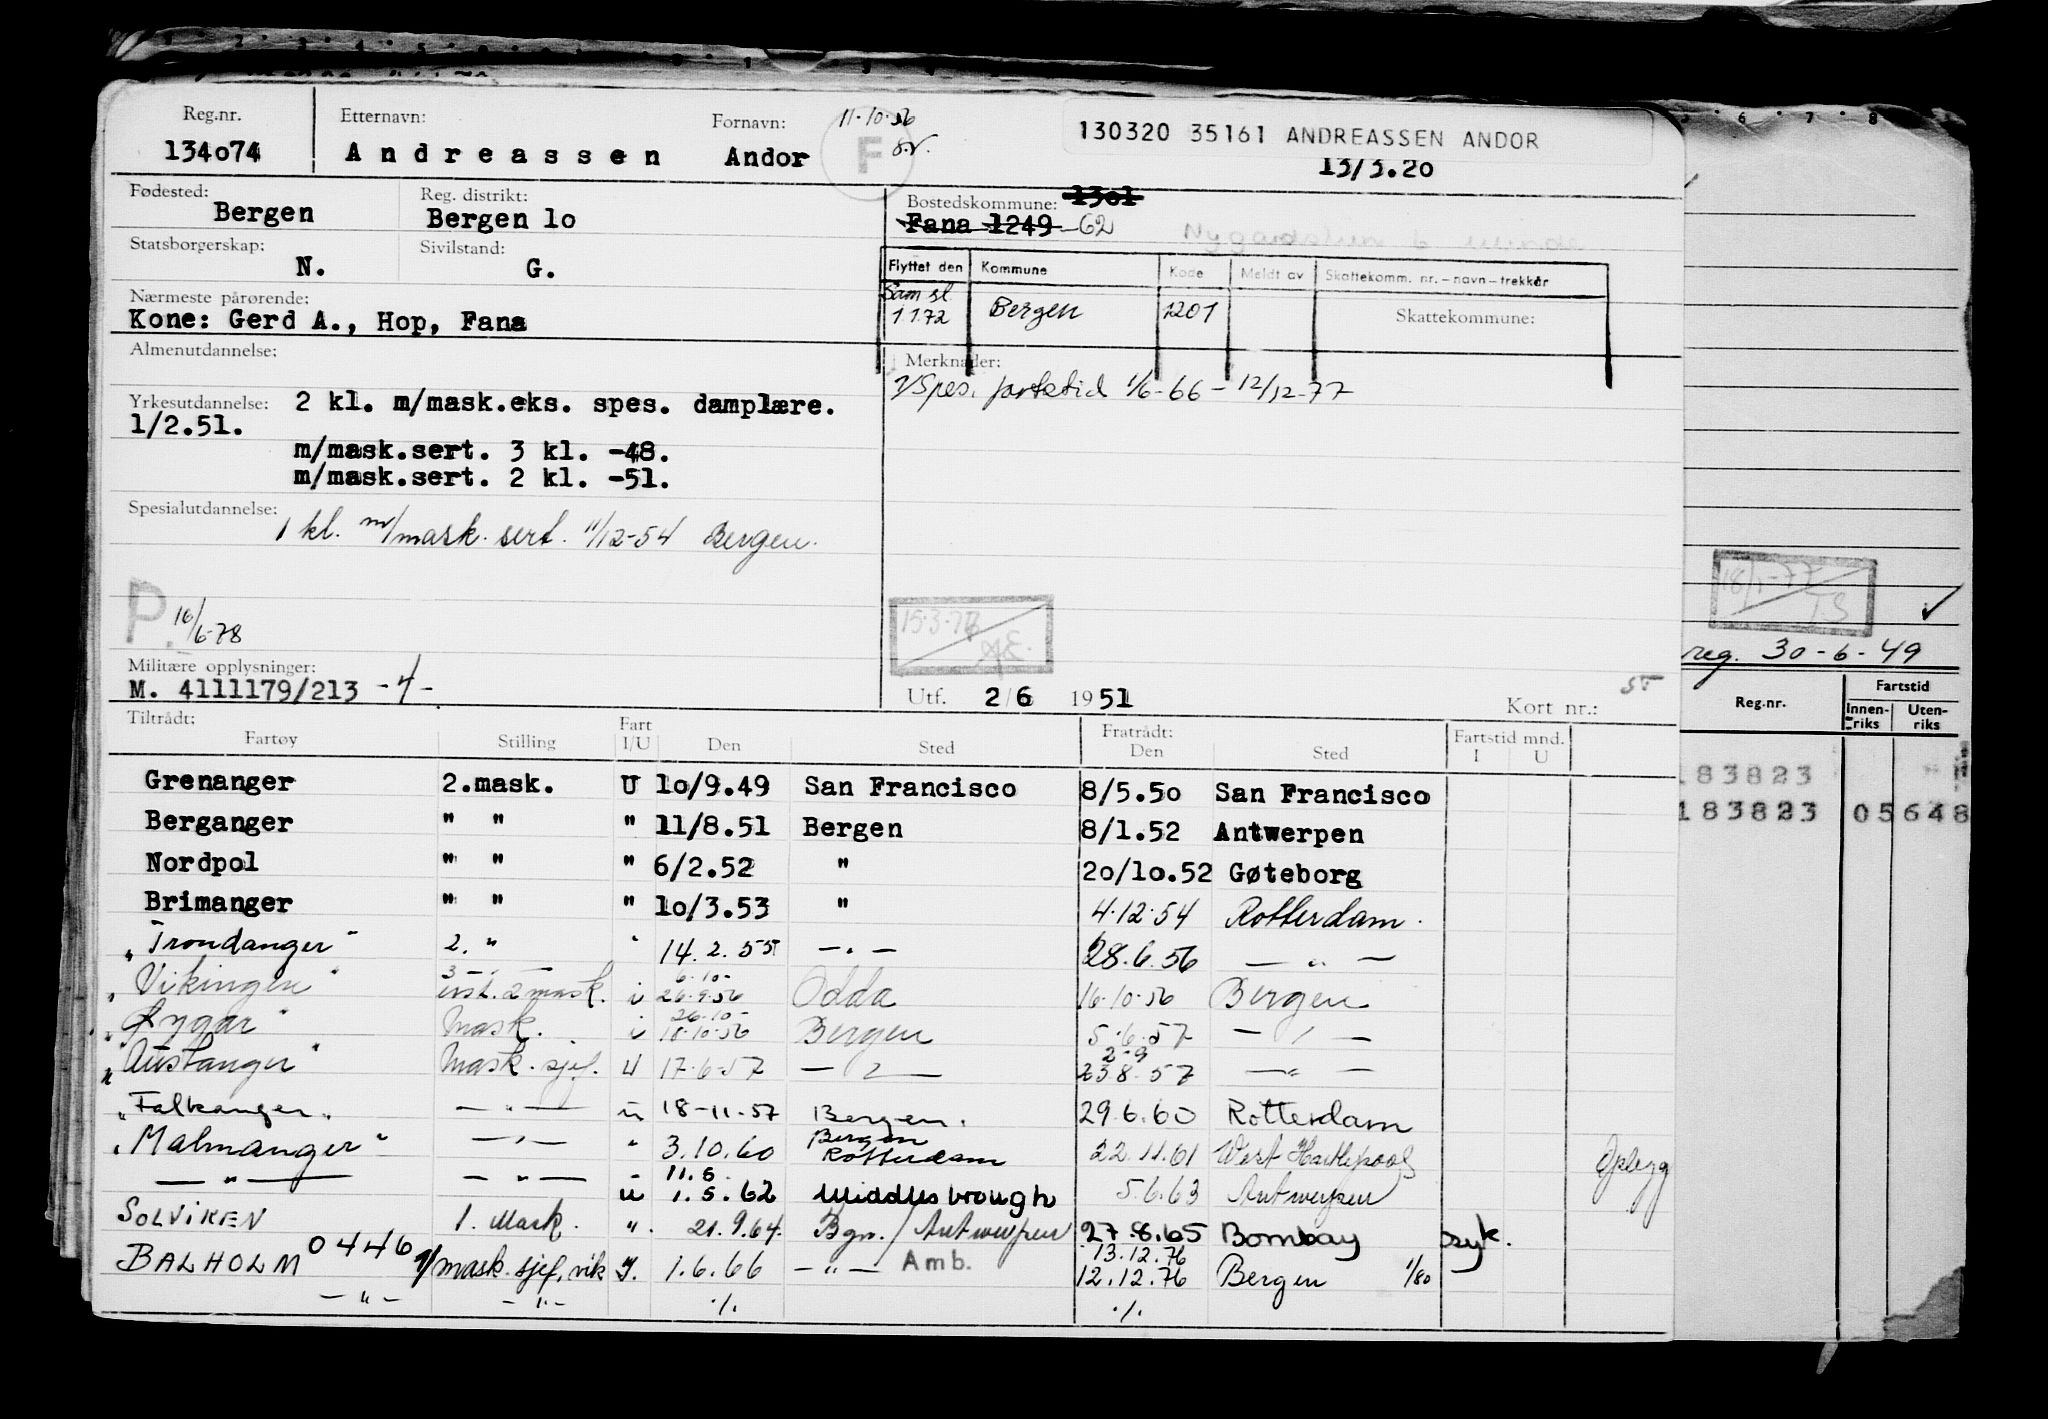 Reg.nr. Etternavn: Fornavn: 11-10-56
134o74 Andreassen Andor F 130320 35161 ANDREASSEN ANDOR
13/3.20
Fødested: Reg. distrikt: Bostedskommune: 1301
Bergen Bergen lo Fana 1249 62
Statsborgerskap: Sivilstand:
N. G.
Flyttet den Kommune Kode Meldt av Skattekomm. nr.-navn-trekkår
Sam sl 1.1.72 Bergen 1201 Skattekommune:
Nærmeste pårørende:
Kone: Gerd A., Hop, Fana
Almenutdannelse: Merknader:
Spes. fartstid 1/6-66 - 12/12-77
Yrkesutdannelse: 2 kl. m/mask.eks. spes. damplære.
1/2.51.
m/mask.sert. 3 kl. -48.
m/mask.sert. 2 kl. -51.
Spesialutdannelse:
1 kl. m/mask. sert. 11/12-54 Bergen.
P. 16/6-78
18/1-77 T.S
reg. 30-6-49
Militære opplysninger:
M. 4111179/213 -4-
Utf. 2/6 1951 Kort nr.:
Reg.nr. Fartstid
Innen-riks Uten-riks
Tiltrådt: Fart Fratrådt: Fartstid mnd.
Fartøy Stilling I/U Den Sted Den Sted I U
Grenanger 2.mask. U lo/9.49 San Francisco 8/5.50 San Francisco
183823
Berganger " " " 11/8.51 Bergen 8/1.52 Antwerpen
183823 05648
Nordpol " " " 6/2.52 " 2o/lo.52 Gøteborg
Brimanger " " " lo/3.53 " 4.12.54 Rotterdam.
"Trondanger" 2. " " 14.2.55 -"- 28.6.56 -"-
3 -"- 6-10-
"Vikingen" 2 mask. i 26.9.56 Odda 16-10-56 Bergen
26-10-
"Øygar" Mask. i 18-10-56 Bergen 5.6.57 -"-
2-9
"Austanger" Mask. sjef. U 17-6-57 -"- 23 8.57 -"-
"Falkanger" -"- u 18-11-57 Bergen. 29.6.60 Rotterdam
"Malmanger" -"- " 3.10.60 Bergen Rotterdam 22.11.61 West Hartlepool Oplegg
11.5
-"- -"- u 1.5.62 Middlesbrough 5.6.63 Antwerpen
SOLVIKEN 1. Mask. ". 21.9.64. Bgn./Antwerpen 27.8.65 Bombay syk.
13.12.76
BALHOLM 0446 1/mask.sjef.vik I. 1.6.66 -"- Amb. 12.12.76 Bergen 1/80
-"- -"- ./. ./.